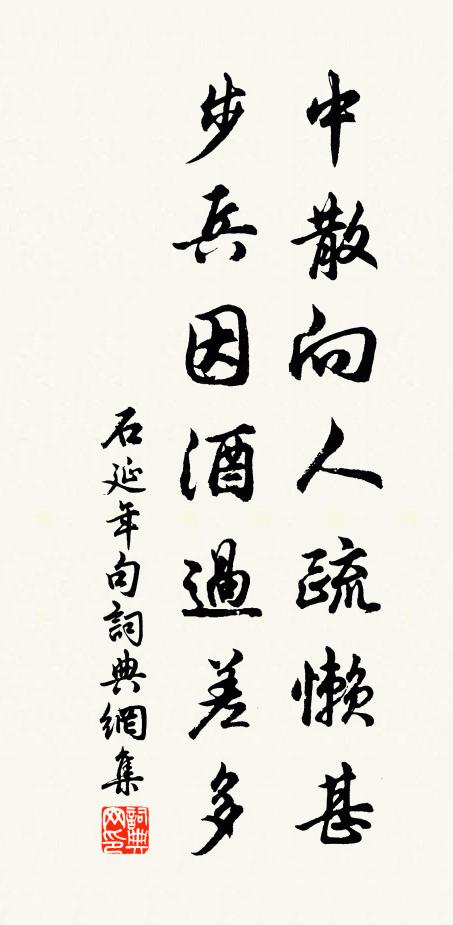 中散向人疏懶甚
步兵因酒過差多
石延年句詞典網集
詞典網印